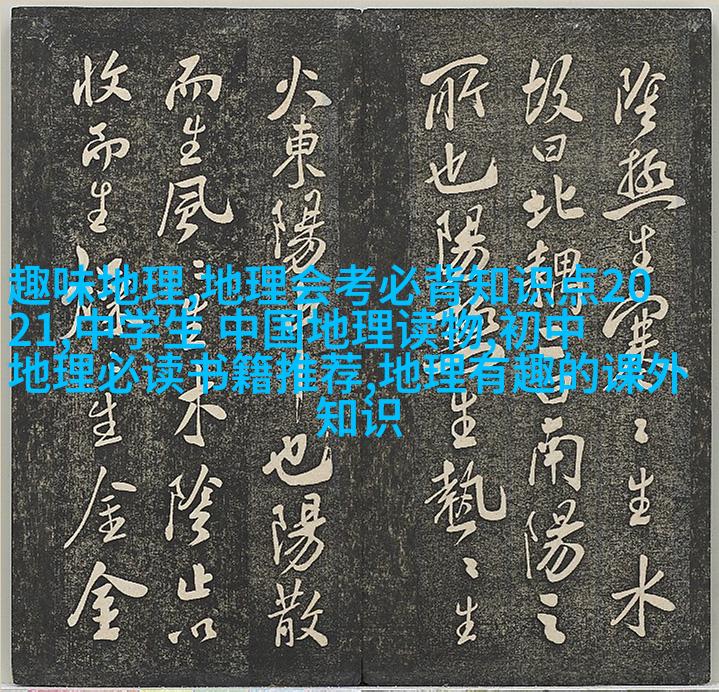 趣味地理,地理会考必背知识点20
21,中学生 中国地理读物,初中
地理必读书籍推荐,地理有趣的课外
知识
陰極生寒〻生水
故曰北耦曰南陽之
所也陽極生熱〻生
火東陽也陽散
而生風〻生木陰止以
收而生燥生金金